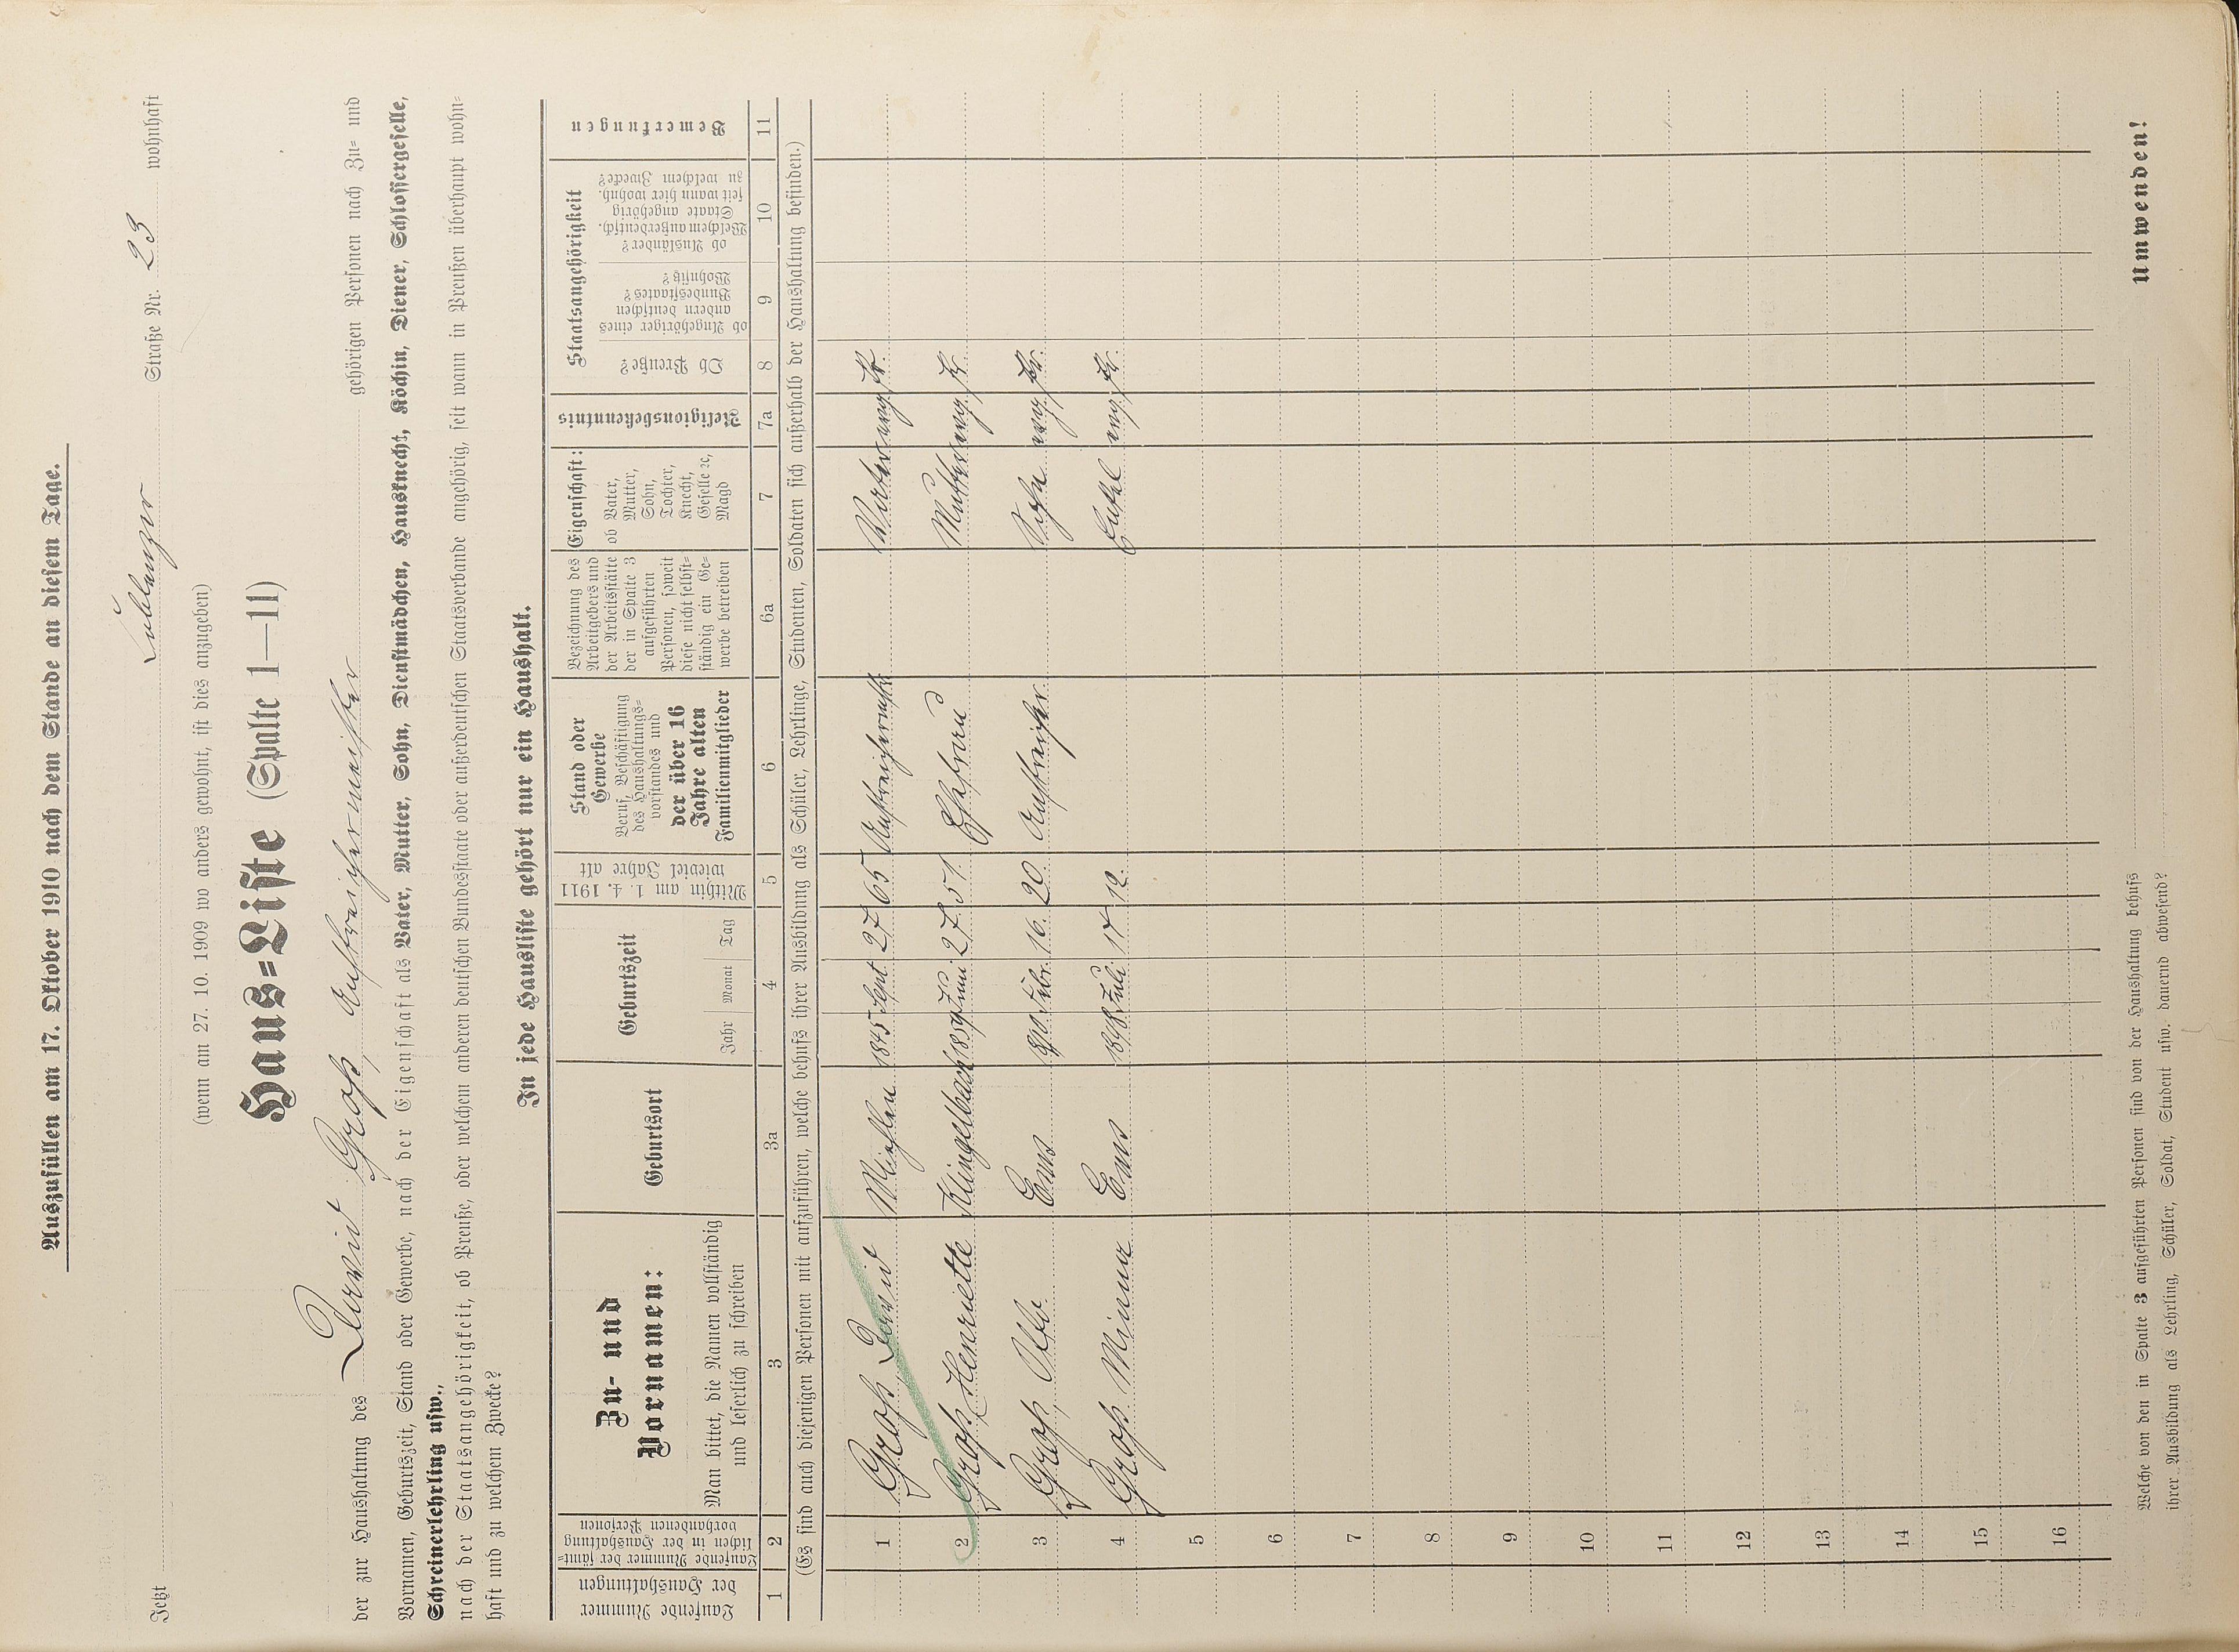 Auszufüllen am 17. Oktober 1910 nach dem Stande an diesem Tage.
Jetzt Coblenzer Straße Nr. 23 wohnhaft
(wenn am 27. 10. 1909 wo anders gewohnt, ist dies anzugeben)
Haus=Liste (Spalte 1—11)
der zur Haushaltung des David Groß, Anstreichermeister gehörigen Personen nach Zu= und
Vornamen, Geburtszeit, Stand oder Gewerbe, nach der Eigenschaft als Vater, Mutter, Sohn, Dienstmädchen, Hausknecht, Köchin, Diener, Schlossergeselle,
Schreinerlehrling usw.,
nach der Staatsangehörigkeit, ob Preuße, oder welchem anderen deutschen Bundesstaate oder außerdeutschen Staatsverbande angehörig, seit wann in Preußen überhaupt wohn=
haft und zu welchem Zwecke?
In jede Hausliste gehört nur ein Haushalt.
Laufende Nummer
der Haushaltungen
Laufende Nummer der sämt=
lichen in der Haushaltung
vorhandenen Personen
Zu- und
Vornamen:
Man bittet, die Namen vollständig
und leserlich zu schreiben
Geburtsort
Geburtszeit
Jahr Monat Tag
Mithin am 1. 4. 1911
wieviel Jahre alt
Stand oder
Gewerbe
Beruf, Beschäftigung
des Haushaltungs=
vorstandes und
der über 16
Jahre alten
Familienmitglieder
Bezeichnung des
Arbeitgebers und
der Arbeitsstätte
der in Spalte 3
aufgeführten
Personen, soweit
diese nicht selbst=
ständig ein Ge=
werbe betreiben
Eigenschaft:
ob Vater,
Mutter,
Sohn,
Tochter,
Knecht,
Geselle ꝛc,
Magd
Religionsbekenntnis
Staatsangehörigkeit
Ob Preuße?
ob Angehöriger eines
andern deutschen
Bundesstaates?
Wohnsitz?
ob Ausländer?
Welchem außerdeutsch.
Staate angehörig
seit wann hier wohnh.
zu welchem Zwecke?
Bemerkungen
1 2 3 3a 4 5 6 6a 7 7a 8 9 10 11
(Es sind auch diejenigen Personen mit aufzuführen, welche behufs ihrer Ausbildung als Schüler, Lehrlinge, Studenten, Soldaten sich außerhalb der Haushaltung befinden.)
1 Groß, David Miehlen 1845 Sept. 27 65 Anstreichermstr. Vater evng. Pr.
2 Groß, Henriette Klingelbach 1859 Juni 27. 51. Ehefrau Mutter evng. Pr.
3 Groß, Otto Ems 890 Febr. 16. 20. Anstreicher. Sohn evng. Pr.
4 Groß Minna Ems 898 Juli 17 12. Enkel evng. Pr.
5
6
7
8
9
10
11
12
13
14
15
16
Welche von den in Spalte 3 aufgeführten Personen sind von der Haushaltung behufs
ihrer Ausbildung als Lehrling, Schüler, Soldat, Student usw. dauernd abwesend?
Umwenden!